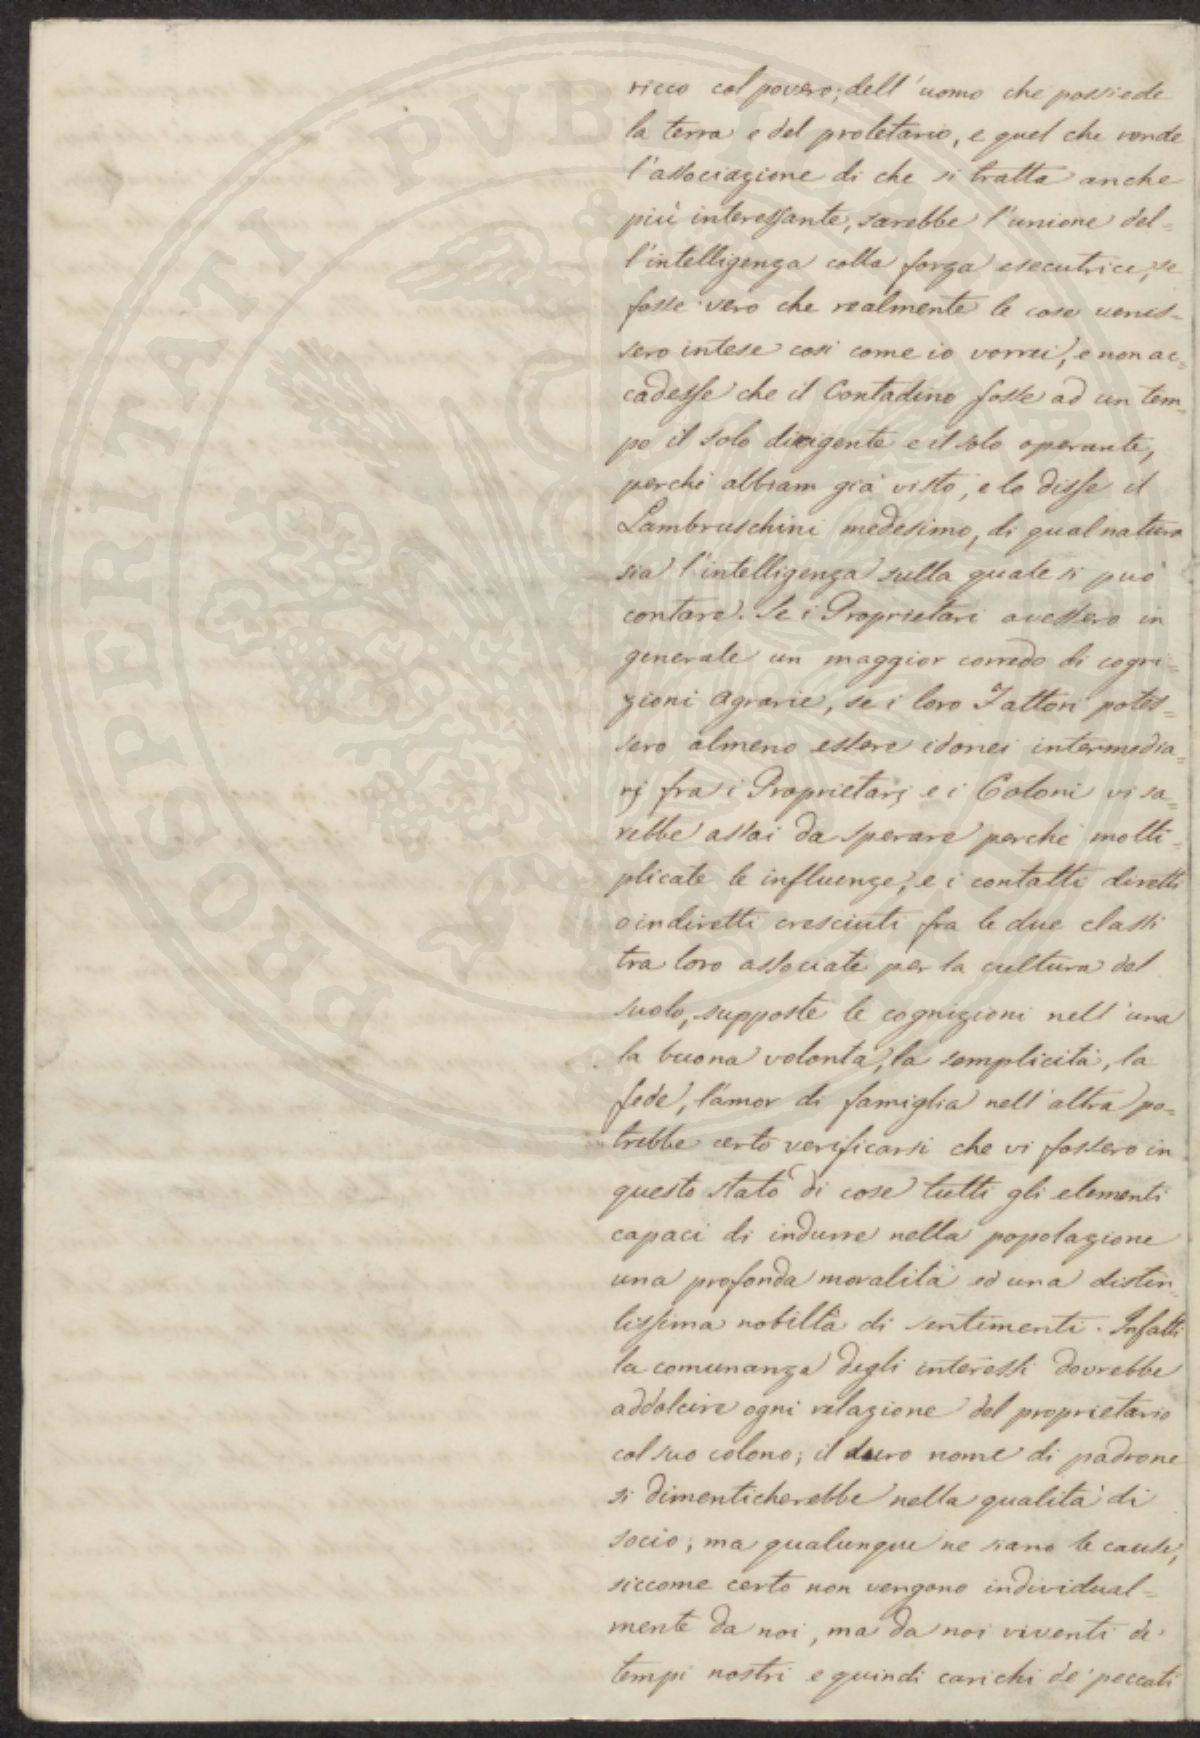 ricco col povero; dell'uomo che possiede
la terra e del proletario, e quel che rende
l'associazione di che si tratta anche
più interessante, sarebbe l'unione del-
l'intelligenza colla forza esecutrice, se
fosse vero che realmente le cose venis-
sero intese così come io vorrei, e non ac-
cadesse che il Contadino fosse ad un tem-
po il solo dirigente e il solo operante,
perché abbiam già visto, e lo disse il
Lambruschini medesimo, di qual natura
sia l'intelligenza sulla quale si può
contare. Se i Proprietari avessero in
generale un maggior corredo di cogni-
zioni agrarie, se i loro Fattori potes-
sero almeno essere idonei intermedia-
rj fra i Proprietarj e i Coloni vi sa-
rebbe assai da sperare perché molti-
plicate le influenze, e i contatti diretti
o indiretti cresciuti fra le due classi
tra loro associate per la cultura del
suolo, supposte le cognizioni nell'una
la buona volontà, la semplicità, la
fede, l'amor di famiglia nell'altra po-
trebbe certo verificarsi che vi fossero in
questo stato di cose tutti gli elementi
capaci di indurre nella popolazione
una profonda moralità ed una distin-
tissima nobiltà di sentimenti. Infatti
la comunanza degli interessi dovrebbe
addolcire ogni relazione del proprietario
col suo colono; il duro nome di padrone
si dimenticherebbe nella qualità di
socio; ma qualunque ne siano le cause,
siccome certo non vengono individual-
mente da noi, ma da noi viventi de'
tempi nostri e quindi carichi de' peccati
PROSPERITATI PVBLICAE